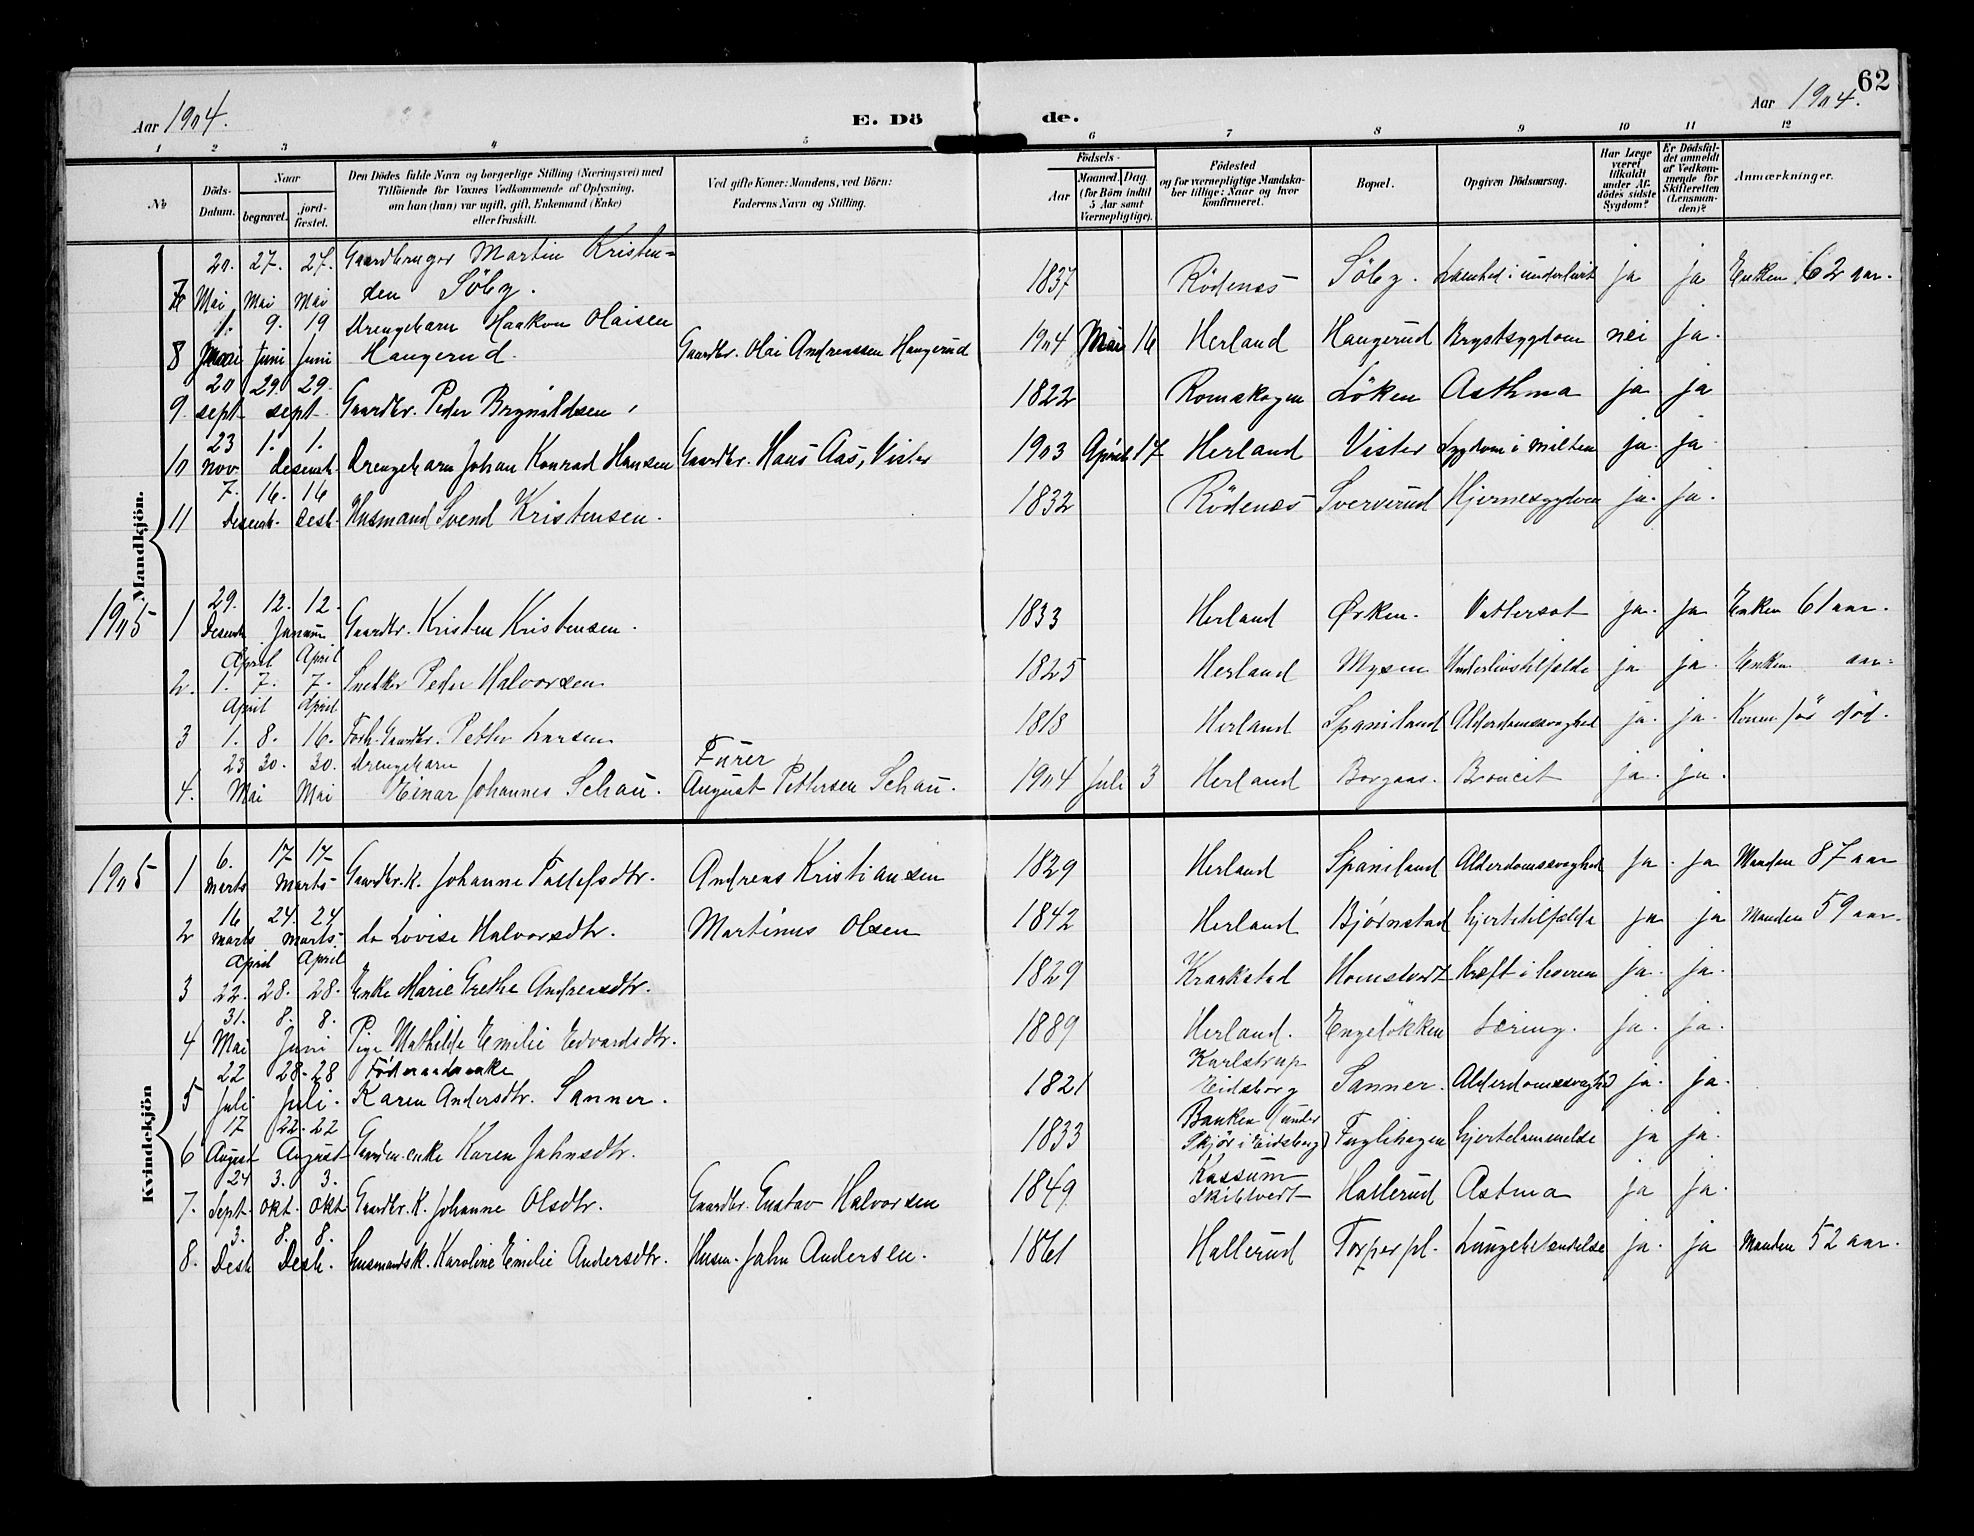 62
Aar 1904. E. Dö de. Aar 1904.
1 2 3 4 5 6 7 8 9 10 11 12
No
Döds-Datum.
Naar
begravet.
jord-fæstet.
Den Dödes fulde Navn og borgerlige Stilling (Næringsvei) med
Tilföiende for Voxnes Vedkommende af Oplysning,
om han (hun) var ugift, gift, Enkemand (Enke)
eller fraskilt.
Ved gifte Koner: Mandens, ved Börn:
Faderens Navn og Stilling.
Födsels-
Aar
Maaned. Dag.
(för Börn indtil
5 Aar samt
Værnepligtige).
Födested
og for værnepligtige Mandska-
ber tillige: Naar og hvor
konfirmeret.
Bopæl.
Opgiven Dödsaarsag.
Har Læge
været
tilkaldt
under Af-
dödes sidste
Sygdom?
Er Dödsfal-
det anmeldt
af Vedkom-
mende for
Skifteretten
(Lensman-
den)?
Anmærkninger.
Mandkjön.
20. 27. 27. Gaardbruger Martin Kristen=
7 Mai Mai Mai sen Söby. 1837 Rödenes Söby. Lamhed i underlivet ja ja Enken 62 aar.
1. 9. 19 Drengebarn Haakon Olaisen
8 Juni Juni Haugerud. Gaardbr. Olai Andreassen Haugerud 1904 Mai 16 Herland Haugerud Brystsygdom nei ja.
20 29. 29.
9. sept. sept. Gaardbr. Peder Brynildsen 1822 Romskogen Löken Asthma ja ja
23 1. 1.
10 nov. desemb. Drengebarn Johan Konrad Hansen Gaardbr. Hans Aas, Vister 1903 April 17 Herland Vister Sygdom i milten ja. ja
7. 16. 16
11 Desemb. desb. Husmand Svend Kristensen. 1832 Rödenes Sververud Hjernesygdom ja. ja.
1905
29. 12. 12.
1 Desemb. Januar Gaardbr. Kristen Kristensen. 1833 Herland Ørken. Vattersot ja. ja Enken 61 aar.
April April
2. 1. 7. 7. Snekker Peder Halvorsen. 1825 Herland Mysen Underlivstilfælde ja ja. Enken aar.
April April
3 1. 8. 16. Forh. Gaardbr. Petter Larsen 1818 Herland Spaniland Alderdomssvaghed ja. ja. Konen før død.
23 30. 30. Drengebarn Furer
4. Mai Mai Einar Johannes Schau. August Pettersen Schau. 1904 Juli 3 Herland Borgaas. Broncit ja. ja.
1905
Kvindekjön
6. 17 17
1 marts marts Gaardbr.k. Johanne Tollefsdtr. Andreas Kristiansen 1829 Herland Spaniland Alderdomssvaghed ja. ja Manden 87 aar
16 24. 24
2 marts marts do Lovise Halvorsdtr. Martinus Olsen 1842 Herland Bjørnstad hjertetilfælde ja ja Manden 59 aar.
April April
3 22. 28. 28. Enke Marie Grethe Andreasdtr. 1829 Kraakstad Homstvedt Kræft i leveren ja. ja.
31. 8. 8.
4 Mai Juni Pige Mathilde Emilie Edvardsdtr. 1889 Herland. Engeløkken Tæring. ja. ja.
22 28. 28 Föderaadsenke Karlstrup
5 Juli Juli. Karen Andersdtr. Sanner. 1821 Eidsberg Sanner. Alderdomssvaghed ja. ja.
17 22. 22 Banken (under
6 August August Gaardm. enke Karen Jahnsdtr. 1833 Skjör i Eidsberg) Fuglehagen hjertelammelse ja ja.
24 3. 3. Kossum
7. Sept. okt. okt Gaardbr. K. Johanne Olsdtr. Gaardbr. Gustav Halvorsen 1849. Skibtvedt Hallerud Astma ja ja.
3. 8. 8.
8. Desb Desb. husmandsk. Karoline Emilie Andersdtr. Husm. Jahn Andersen. 1861 Hallerud Torper pl. Lungebetændelse ja. ja Manden 52 aar.